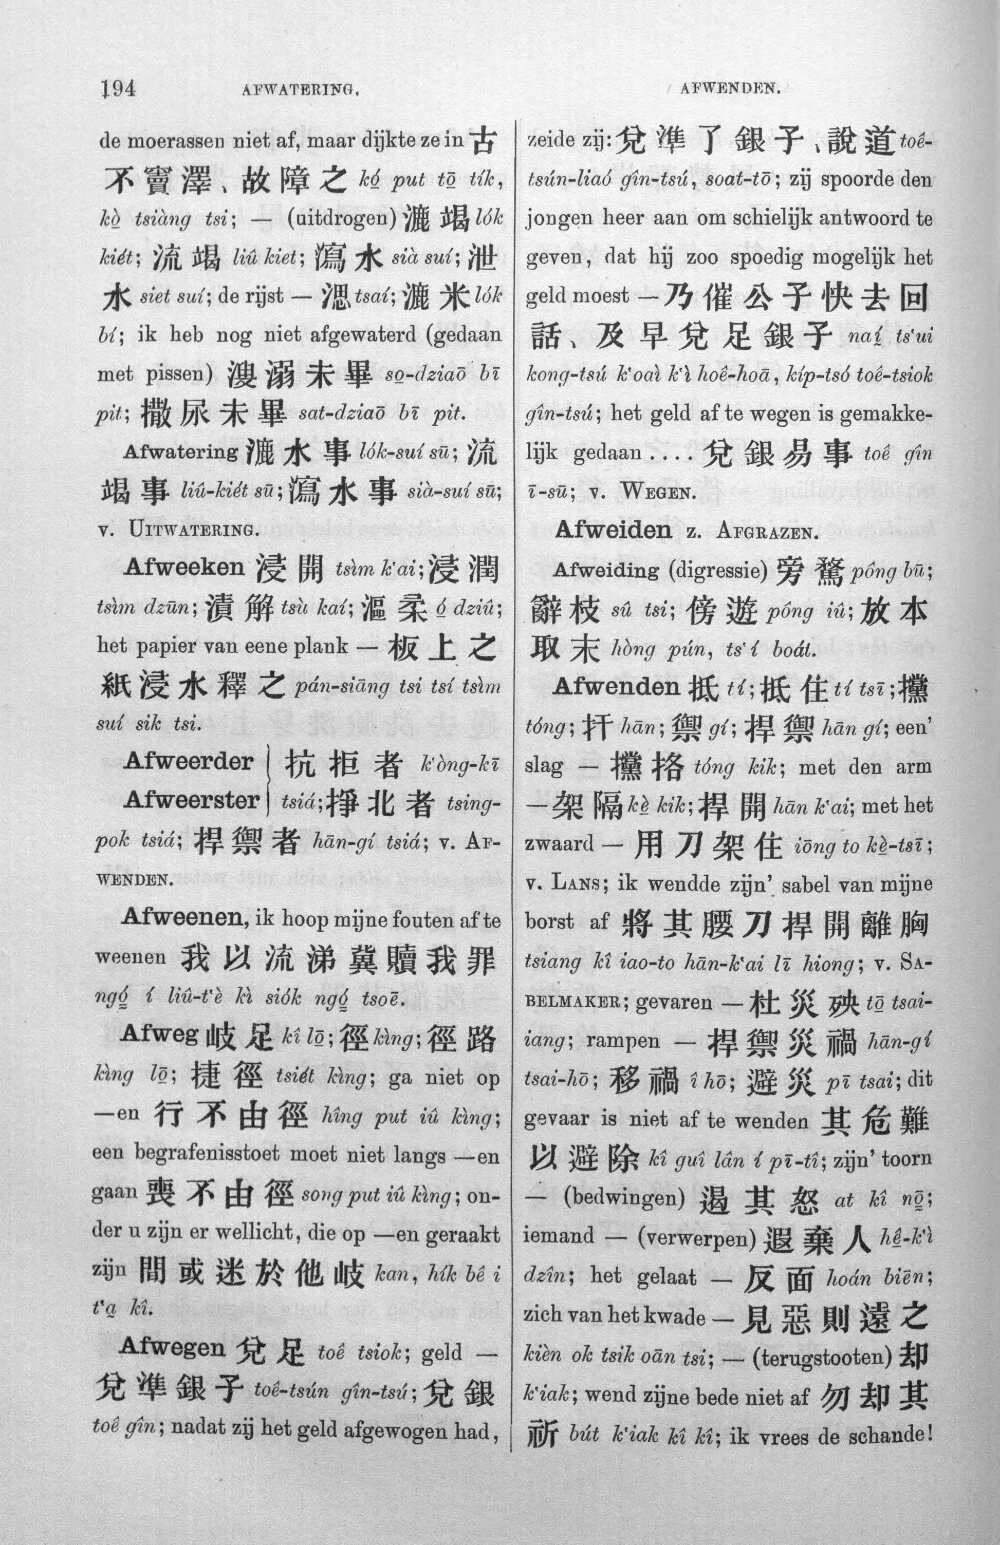 194
AFWATERING.
AFWENDEN.
de moerassen niet af, maar dijkte ze in 古
不竇澤、故障之 kó͘ put tō͘ tík,
kò͘ tsiàng tsi; — (uitdrogen) 漉竭 lók
kiét; 流竭 liû kiet; 瀉水 sià suí; 泄
水 siet suí; de rijst — 漗 tsaí; 漉米 lók
bí; ik heb nog niet afgewaterd (gedaan
met pissen) 溲溺未畢 so͘-dziaō bī
pit; 撒尿未畢 sat-dziaō bī pit.
Afwatering 漉水事 lók-suí sū; 流
竭事 liû-kiét sū; 瀉水事 sià-suí sū;
v. UITWATERING.
Afweeken 浸開 tsìm k'ai; 浸潤
tsìm dzūn; 漬解 tsù kaí; 漚柔 ó͘ dziû;
het papier van eene plank — 板上之
紙浸水釋之 pán-siāng tsi tsí tsìm
suí sik tsi.
Afweerder } 抗拒者 k'òng-kī
Afweerster } tsiá; 掙北者 tsing-
pok tsiá; 捍禦者 hān-gí tsiá; v. AF-
WENDEN.
Afweenen, ik hoop mijne fouten af te
weenen 我以流涕冀贖我罪
ngó͘ í liû-t'è kì siók ngó͘ tsoē.
Afweg 岐足 kî lō; 徑 kìng; 徑路
kìng lō͘; 捷徑 tsiét kìng; ga niet op
—en 行不由徑 hîng put iû kìng;
een begrafenisstoet moet niet langs —en
gaan 喪不由徑 song put iû kìng; on-
der u zijn er wellicht, die op —en geraakt
zijn 間或迷於他岐 kan, hík bê i
t'a̤ kî.
Afwegen 兌足 toê tsiok; geld —
兌準銀子 toê-tsún gîn-tsú; 兌銀
toê gîn; nadat zij het geld afgewogen had,
zeide zij: 兌準了銀子、說道 toê-
tsún-liaó gîn-tsú, soat-tō; zij spoorde den
jongen heer aan om schielijk antwoord te
geven, dat hij zoo spoedig mogelijk het
geld moest — 乃催公子快去回
話、及早兌足銀子 naí ts'ui
kong-tsú k'oaì k'ì hoê-hoā, kíp-tsó toê-tsiok
gîn-tsú; het geld af te wegen is gemakke-
lijk gedaan .... 兌銀易事 toê gîn
ī-sū; v. WEGEN.
Afweiden z. AFGRAZEN.
Afweiding (digressie) 旁鶩 póng bū;
辭枝 sû tsi; 傍遊 póng iû; 放本
取末 hòng pún, ts'í boát.
Afwenden 抵 tí; 抵住 tí tsī; 攩
tóng; 扞 hān; 禦 gí; 捍禦 hān gí; een'
slag — 攩挌 tóng kik; met den arm
— 架隔 kè̤ kik; 捍開 hān k'ai; met het
zwaard — 用刀架住 iōng to kè̤-tsī;
v. LANS; ik wendde zijn' sabel van mijne
borst af 將其腰刀捍開離胸
tsiang kî iao-to hān-k'ai lī hiong; v. SA-
BELMAKER; gevaren — 杜災殃 tō͘ tsai-
iang; rampen — 捍禦災禍 hān-gí
tsai-hō; 移禍 î hō; 避災 pī tsai; dit
gevaar is niet af te wenden 其危難
以避除 kî guî lân í pī-tî; zijn' toorn
— (bedwingen) 遏其怒 at kî nō͘;
iemand — (verwerpen) 遐棄人 hê̤-k'ì
dzîn; het gelaat — 反面 hoán biēn;
zich van het kwade — 見惡則遠之
kièn ok tsik oān tsi; — (terugstooten) 却
k'iak; wend zijne bede niet af 勿却其
祈 bút k'iak kî kî; ik vrees de schande!